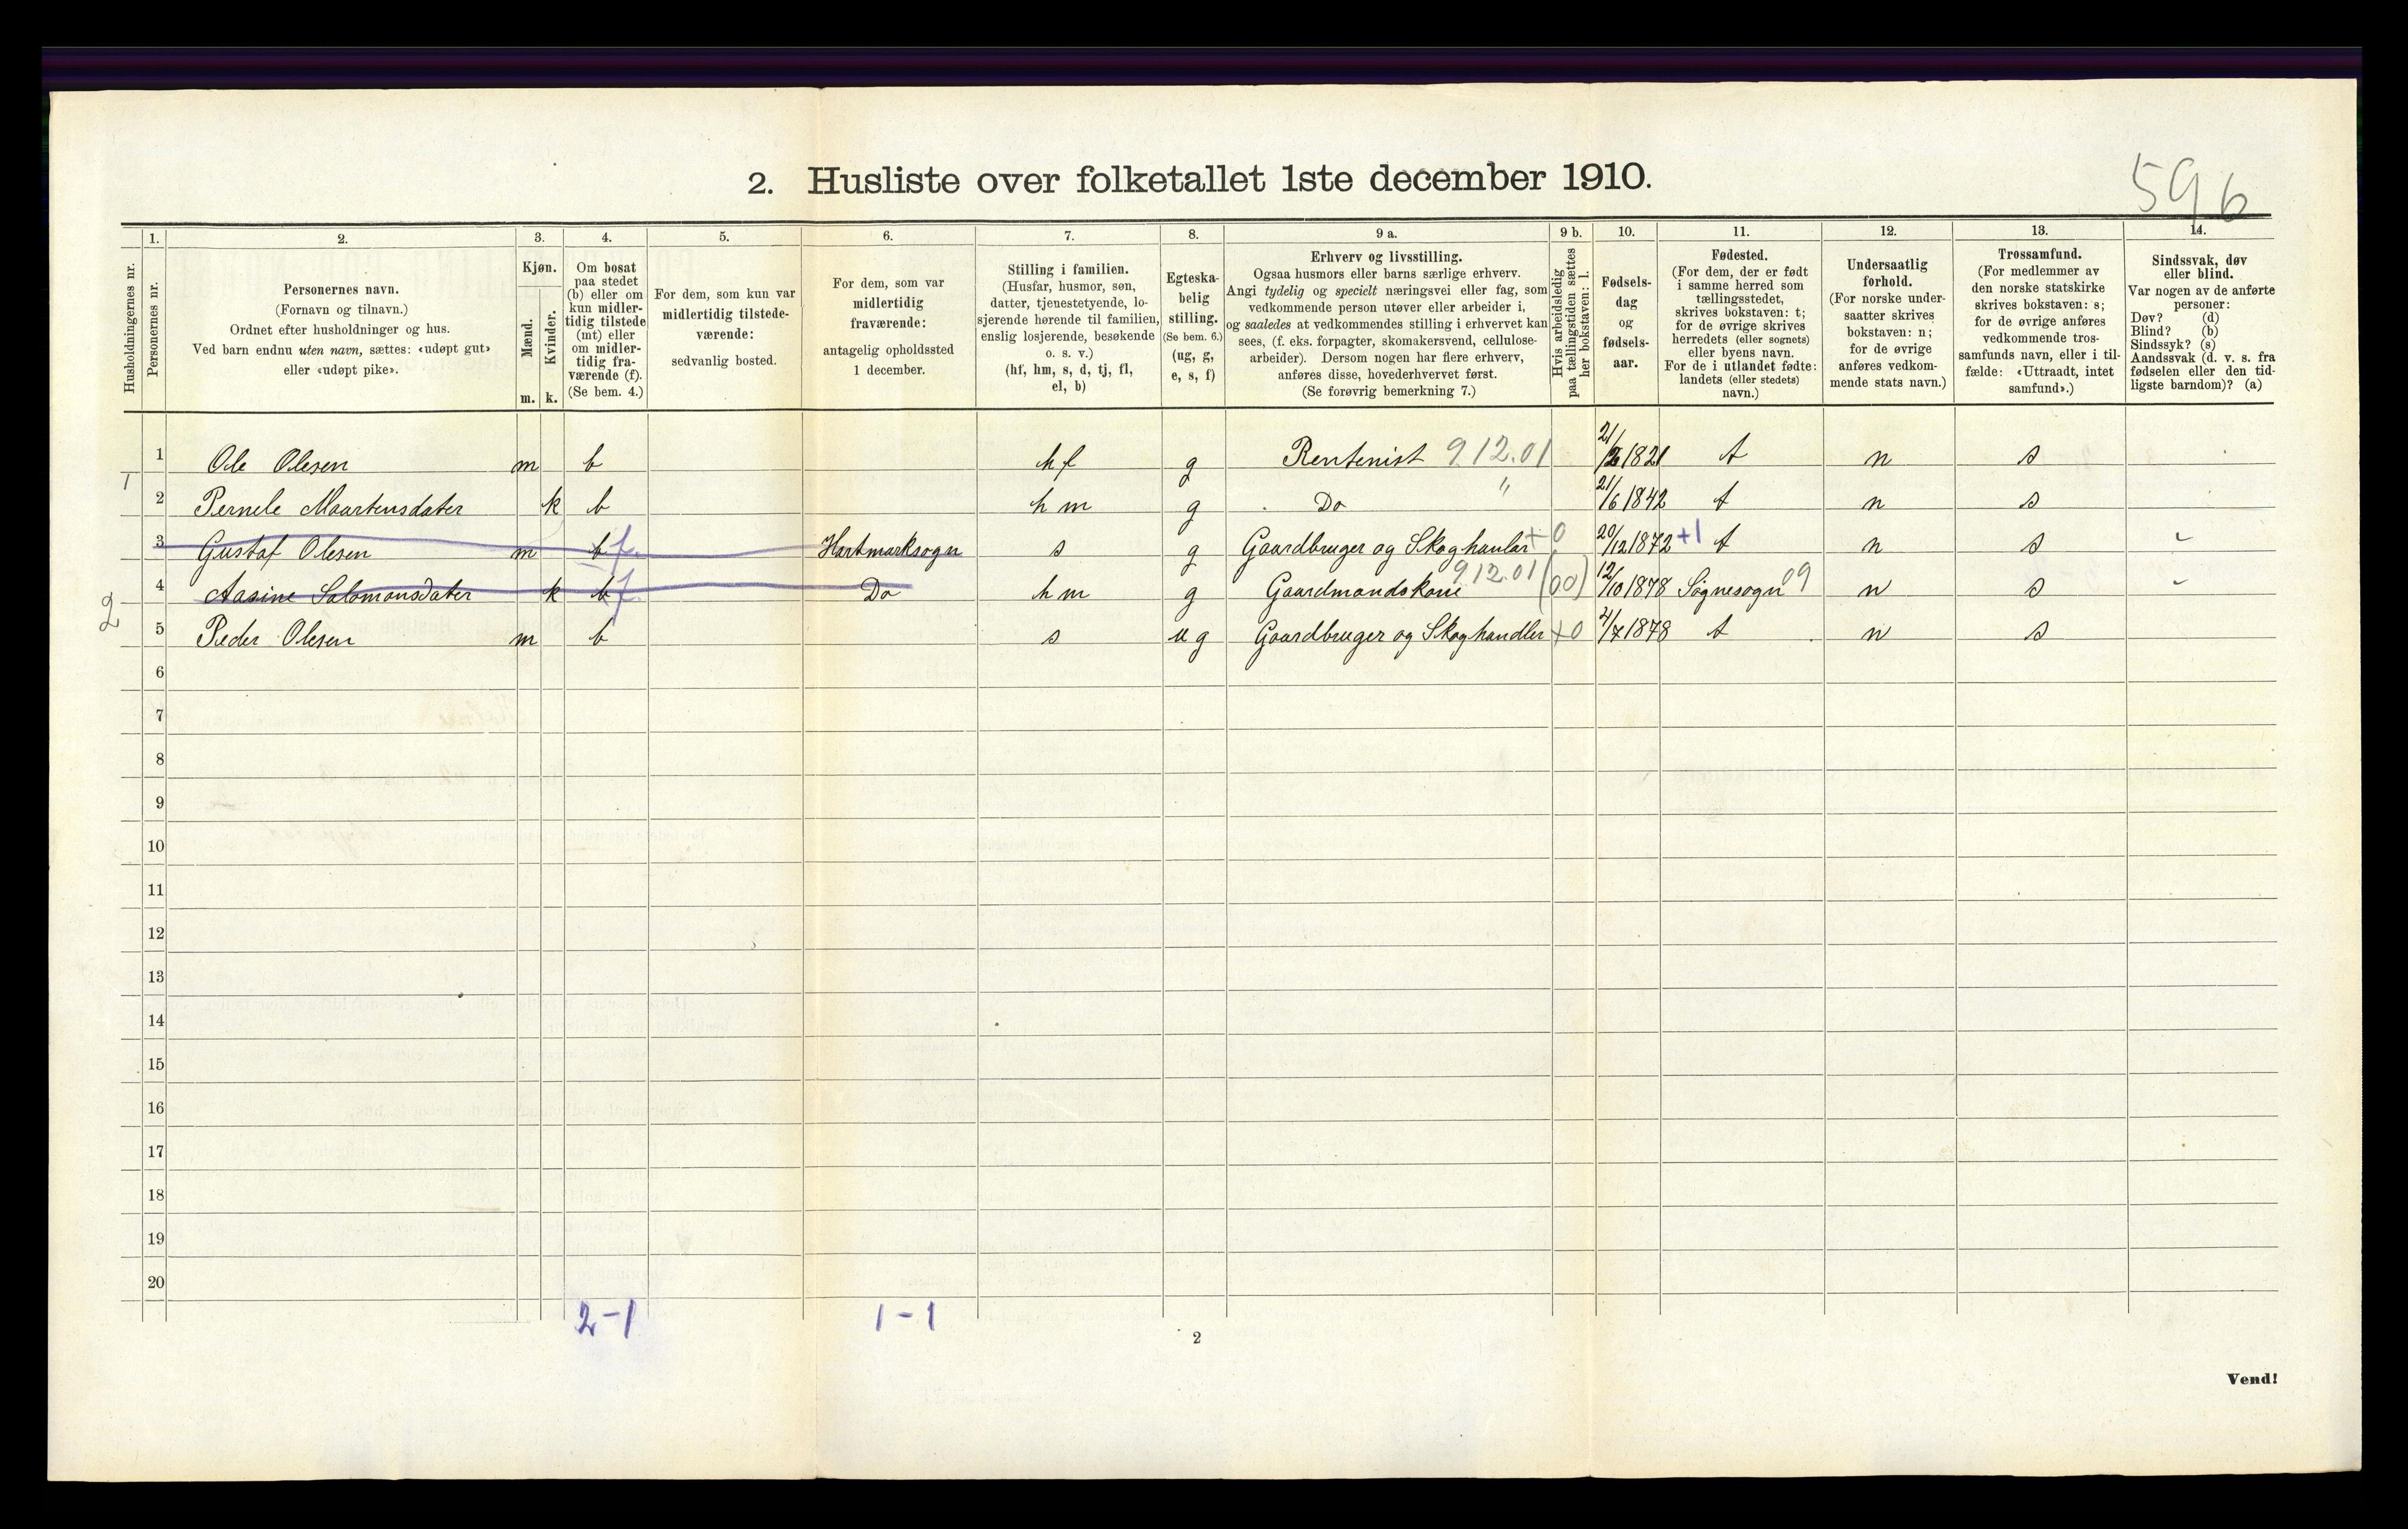 596
2. Husliste over folketallet 1ste december 1910.
Husholdningernes nr.
1.
Personernes nr.
2.
Personernes navn.
(Fornavn og tilnavn.)
Ordnet efter husholdninger og hus.
Ved barn endnu uten navn, sættes: «udøpt gut»
eller «udøpt pike».
3.
Kjøn.
Mænd.
Kvinder.
m. k.
4.
Om bosat
paa stedet
(b) eller om
kun midler-
tidig tilstede
(mt) eller
om midler-
tidig fra-
værende (f).
(Se bem. 4.)
5.
For dem, som kun var
midlertidig tilstede-
værende:
sedvanlig bosted.
6.
For dem, som var
midlertidig
fraværende:
antagelig opholdssted
1 december.
7.
Stilling i familien.
(Husfar, husmor, søn,
datter, tjenestetyende, lo-
sjerende hørende til familien,
enslig losjerende, besøkende
o. s. v.)
(hf, hm, s, d, tj, fl,
el, b)
8.
Egteska-
belig
stilling.
(Se bem. 6.)
(ug, g,
e, s, f)
9 a.
Erhverv og livsstilling.
Ogsaa husmors eller barns særlige erhverv.
Angi tydelig og specielt næringsvei eller fag, som
vedkommende person utøver eller arbeider i,
og saaledes at vedkommendes stilling i erhvervet kan
sees, (f. eks. forpagter, skomakersvend, cellulose-
arbeider). Dersom nogen har flere erhverv,
anføres disse, hovederhvervet først.
(Se forøvrig bemerkning 7.)
9 b.
Hvis arbeidsledig
paa tællingstiden sættes
her bokstaven: l.
10.
Fødsels-
dag
og
fødsels-
aar.
11.
Fødested.
(For dem, der er født
i samme herred som
tællingsstedet,
skrives bokstaven: t;
for de øvrige skrives
herredets (eller sognets)
eller byens navn.
For de i utlandet fødte:
landets (eller stedets)
navn.)
12.
Undersaatlig
forhold.
(For norske under-
saatter skrives
bokstaven: n;
for de øvrige
anføres vedkom-
mende stats navn.)
13.
Trossamfund.
(For medlemmer av
den norske statskirke
skrives bokstaven: s;
for de øvrige anføres
vedkommende tros-
samfunds navn, eller i til-
fælde: «Uttraadt, intet
samfund».)
14.
Sindssvak, døv
eller blind.
Var nogen av de anførte
personer:
Døv? (d)
Blind? (b)
Sindssyk? (s)
Aandssvak (d. v. s. fra
fødselen eller den tid-
ligste barndom)? (a)
1 1 Ole Olesen m b hf g Rentenist 912.01 21/2 1821 t n s
2 Pernele Maartensdater k b hm g Do " 21/6 1842 t n s
3 Gustaf Olesen m b f. Hartmarksogn s g Gaardbruger og Skoghanlar +0 20/12 1872 +1 t n s -
2 4 Aasine Salomonsdater k b f. Do hm g Gaardmandskone 912.01 (00) 12/10 1878 Søgnesogn 09 n s -
5 Peder Olesen m b s ug Gaardbruger og Skoghandler +0 4/7 1878 t n s
6
7
8
9
10
11
12
13
14
15
16
17
18
19
20
2-1 1-1
2
Vend!